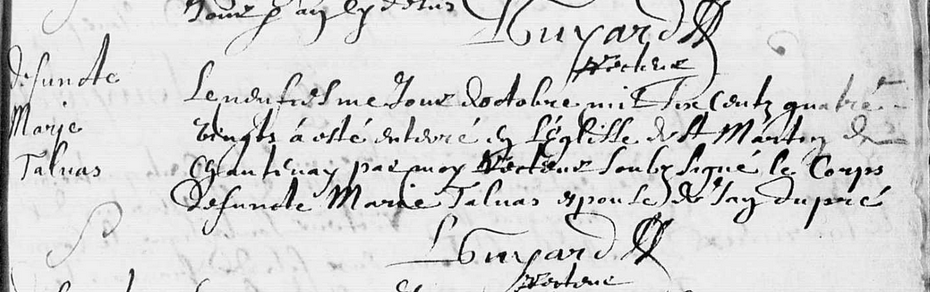 Jour
Guyard
Recteur
defuncte
Marie
Taluas
Le neufiesme Jour doctobre mil six Centz quatre
vingts a esté enterré en L'eglisse de St Martin de
Chantenay par moy Recteur soubz signé le Corps
defuncte Marie Taluas espouse de Jan dupré
Guyard
Recteur